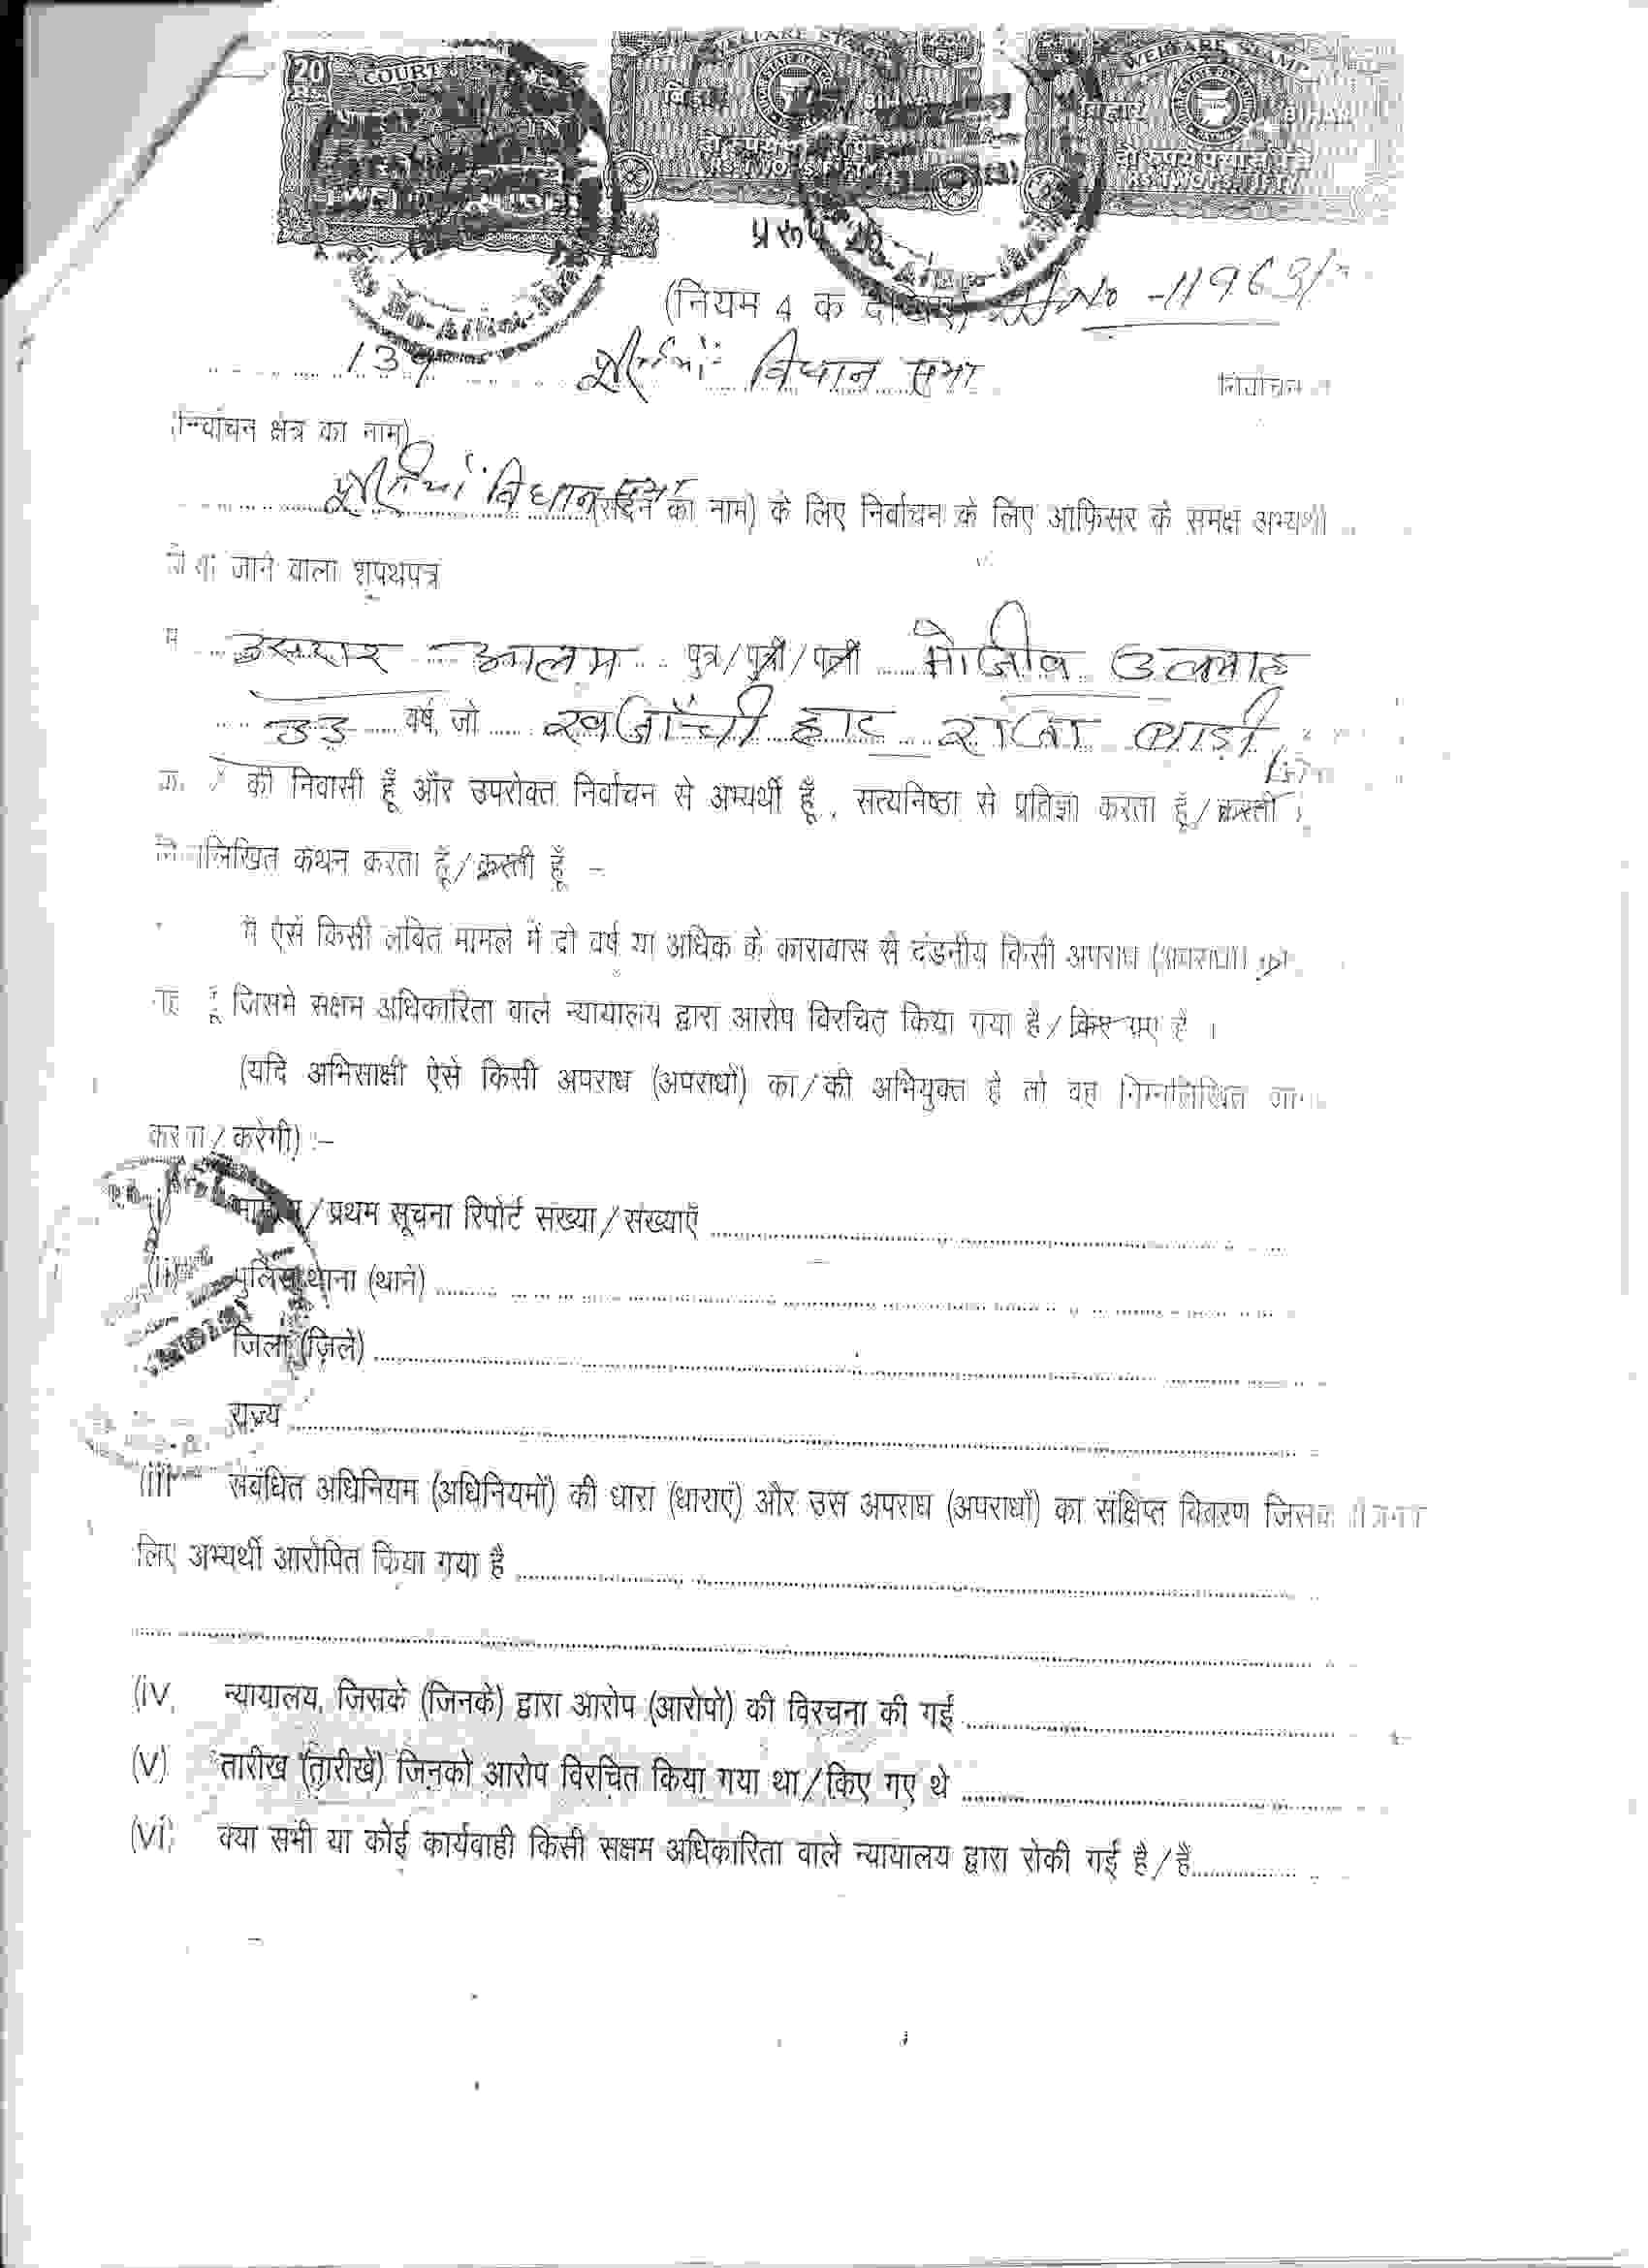 20 COURT WELFARE STAMP WELFARE STAMP
Rs. बिहार BIHAR बिहार BIHAR
दो रुपये पचास पैसे
RS. TWO PS. FIFTY RS. TWO PS. FIFTY
प्ररूप 26
(नियम 4 क देखिए) No - 11963/
139 पूर्णियाँ विधान सभा निर्वाचन
(निर्वाचन क्षेत्र का नाम)
पूर्णियाँ विधान सभा (सदन का नाम) के लिए निर्वाचन के लिए ऑफिसर के समक्ष अभ्यर्थी
जाने वाला शपथपत्र
मैं आलम पुत्र/पुत्री/पत्नी मोजीब
33 वर्ष, जो खजाँची हाट राजा बाड़ी
की निवासी हूँ और उपरोक्त निर्वाचन से अभ्यर्थी हूँ, सत्यनिष्ठा से प्रतिज्ञा करता हूँ/करती
निम्नलिखित कथन करता हूँ/करती हूँ –
मैं ऐसे किसी लंबित मामले में दो वर्ष या अधिक के कारावास से दंडनीय किसी अपराध (अपराधों) का
हूँ जिसमे सक्षम अधिकारिता वाले न्यायालय द्वारा आरोप विरचित किया गया है/किए गए हैं ।
(यदि अभिसाक्षी ऐसे किसी अपराध (अपराधों) का/की अभियुक्त है तो वह निम्नलिखित
करेगा/करेगी) :–
(i) मामला/प्रथम सूचना रिपोर्ट संख्या/संख्याएँ
(ii) पुलिस थाना (थाने)
जिला (ज़िले)
राज्य
(iii) संबंधित अधिनियम (अधिनियमों) की धारा (धाराएं) और उस अपराध (अपराधों) का संक्षिप्त विवरण
लिए अभ्यर्थी आरोपित किया गया है
(iv) न्यायालय, जिसके (जिनके) द्वारा आरोप (आरोपों) की विरचना की गई
(v) तारीख (तारीखें) जिनको आरोप विरचित किया गया था/किए गए थे
(vi) क्या सभी या कोई कार्यवाही किसी सक्षम अधिकारिता वाले न्यायालय द्वारा रोकी गई है/हैं